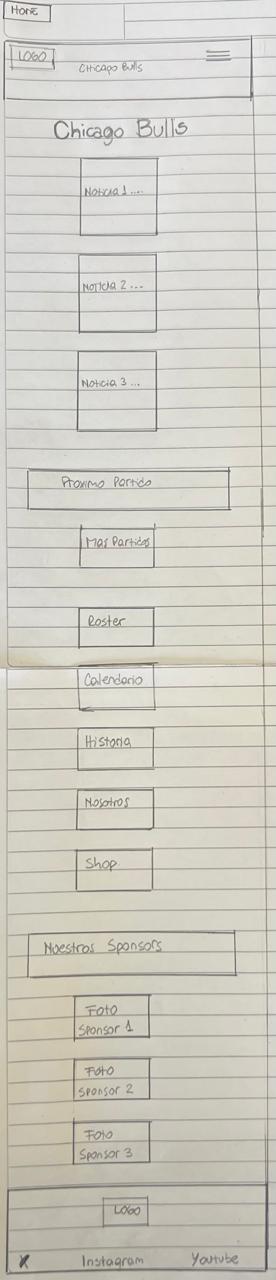 Home
LOGO
Chicago Bulls
Chicago Bulls
Noticia 1 ....
Noticia 2 ...
Noticia 3 ...
Proximo Partido
Mas Partidos
Roster
Calendario
Historia
Nosotros
Shop
Nuestros Sponsors
Foto
Sponsor 1
Foto
Sponsor 2
Foto
Sponsor 3
LOGO
X Instagram Youtube